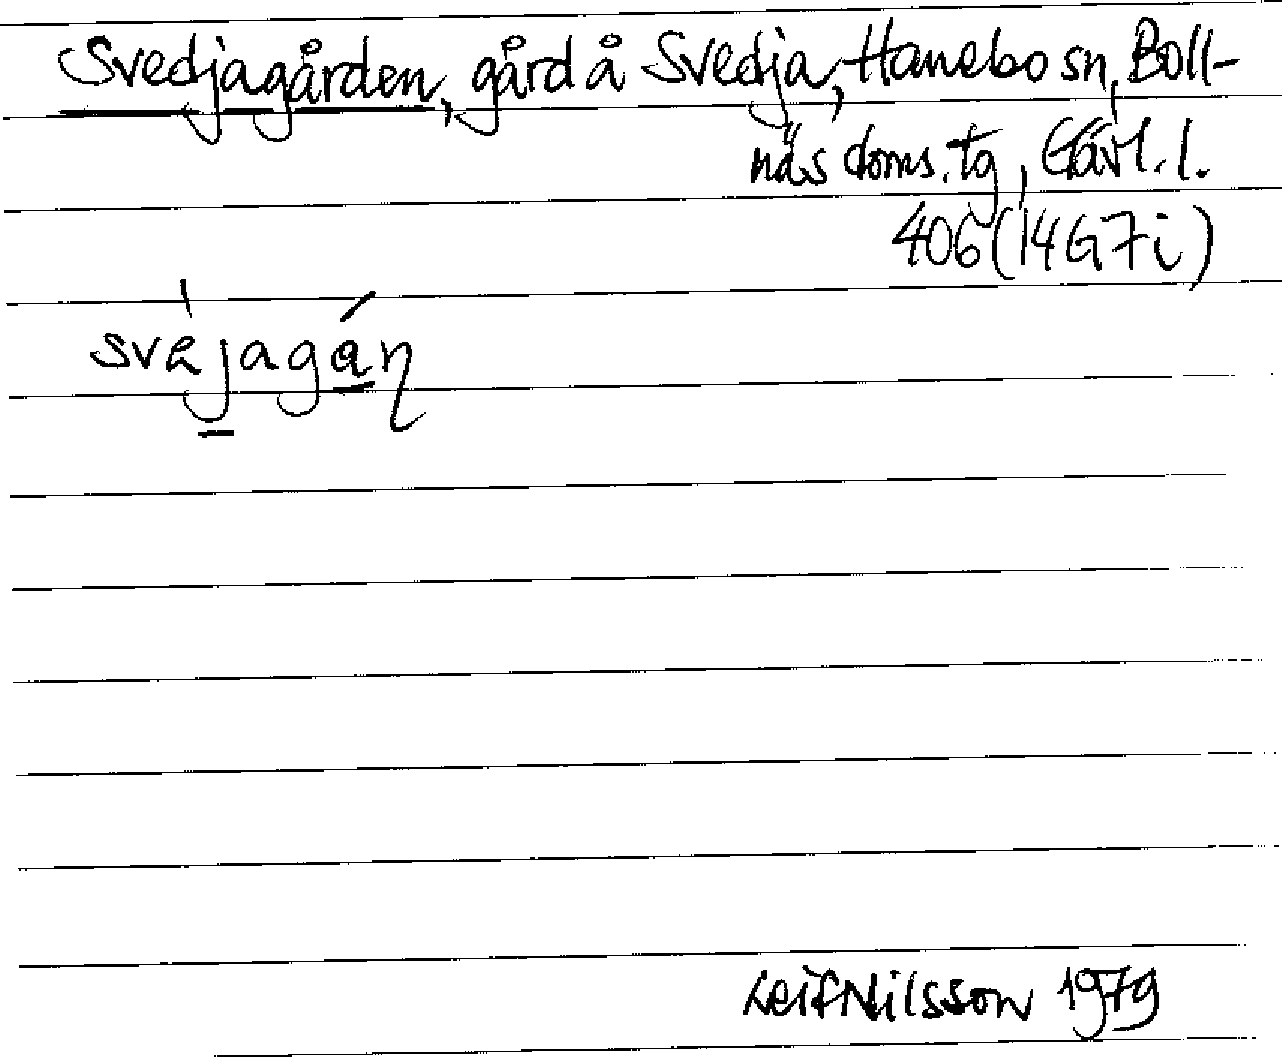 Svedjagården, gård å Svedja, Hanebo sn, Boll-
näs doms. tg, Gävl. l.
406 (14G7i)
svejagaɳ
Leif Nilsson 1979